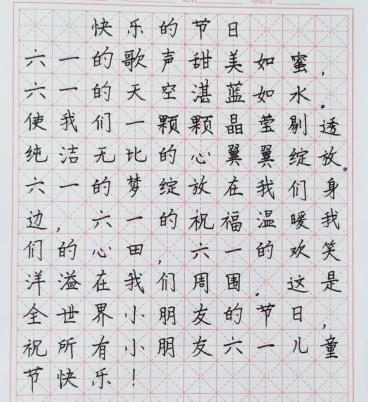 快乐的节日
六一的歌声甜美如蜜，
六一的天空湛蓝如水。
使我们一颗颗晶莹剔透
纯洁无比的心翼翼绽放。
六一的梦绽放在我们身
边，六一的祝福温暖我
们的心田，六一的欢笑
洋溢在我们周围。这是
全世界小朋友的节日，
祝所有小朋友六一儿童
节快乐！